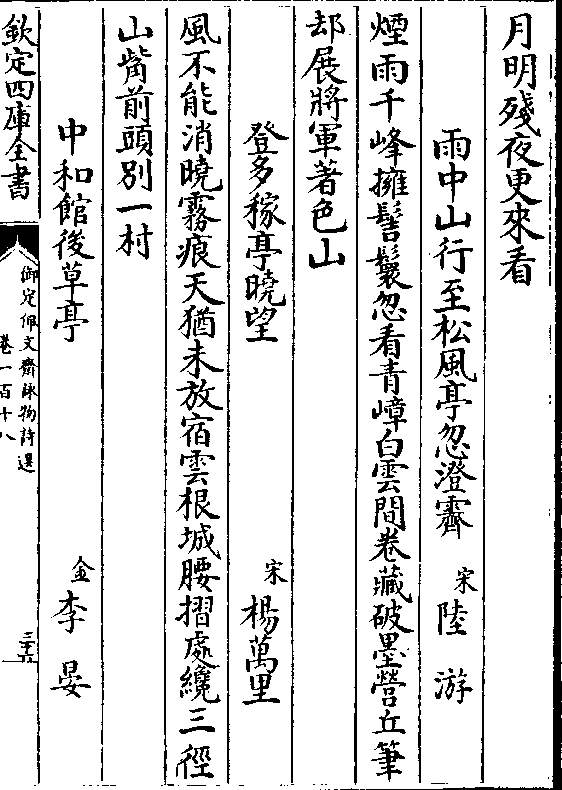 月明殘夜更來看
雨中山行至松風亭忽澄霽 宋 陸游
煙雨千峰擁髻鬟忽看青嶂白雲間卷藏破墨營丘筆
却展將軍著色山
登多稼亭曉望 宋 楊萬里
風不能消曉霧痕天猶未放宿雲根城腰摺處纔三徑
山觜前頭別一村
中和館後草亭 金 李晏
欽定四庫全書
御定佩文齋詠物詩選
卷一百十八